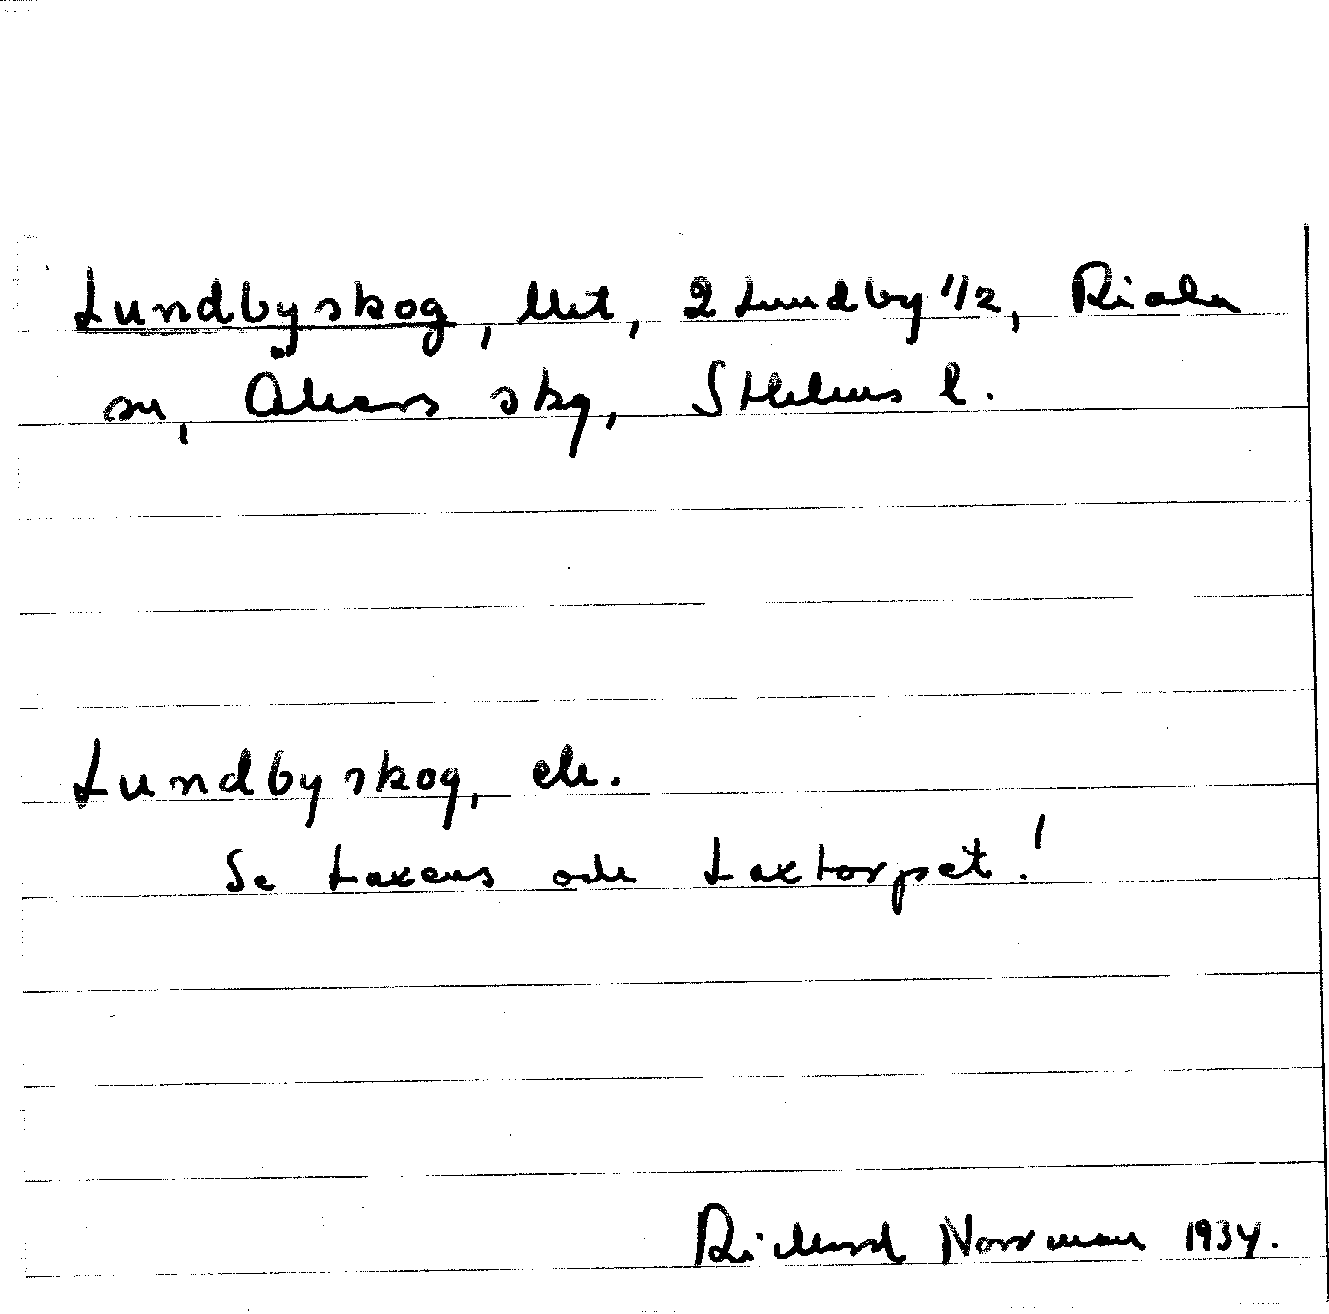 Lundbyskog, lht, 2 Lundby 1/2, Riala
sn, Åkers skg, Sthlms l.
Lundbyskog, etc.
Se Laxens och Laxtorpet!
Richard Norrman 1934.